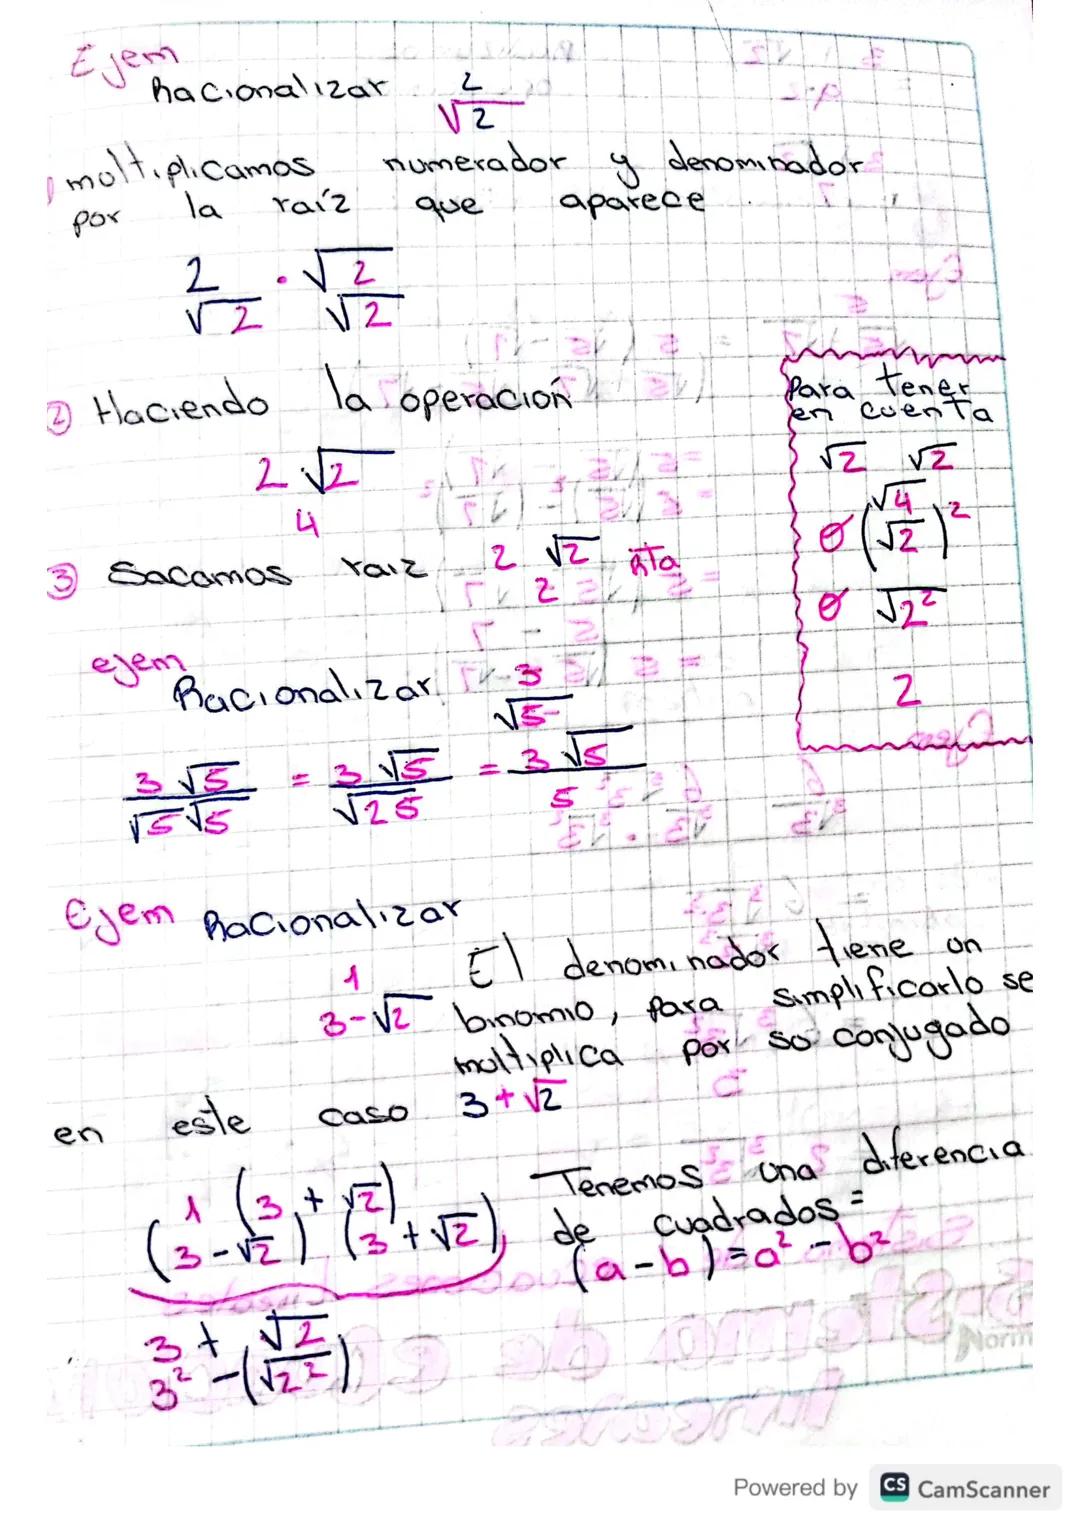 Ejem
Racionalizar 2/√2
multiplicamos numerador y denominador
por la raíz que aparece.
2/√2 · √2/√2
② Haciendo la operación
2√2
4
③ Sacamos raiz 2√2/2 Rta
Para tener
en cuenta
√2 √2
√4
o (√2)²
o √2²
2
ejem
Racionalizar 3/√5
3√5/√5√5 = 3√5/√25 = 3√5/5
Ejem Racionalizar
1/3-√2 El denominador tiene un
binomio, para simplificarlo se
multiplica por su conjugado
en este caso 3+√2
1(3+√2)
(3-√2).(3+√2)
Tenemos una diferencia
de cuadrados =
(a-b)=a²-b²
3+√2
3²-(√2²)
Norm
Powered by CS CamScanner